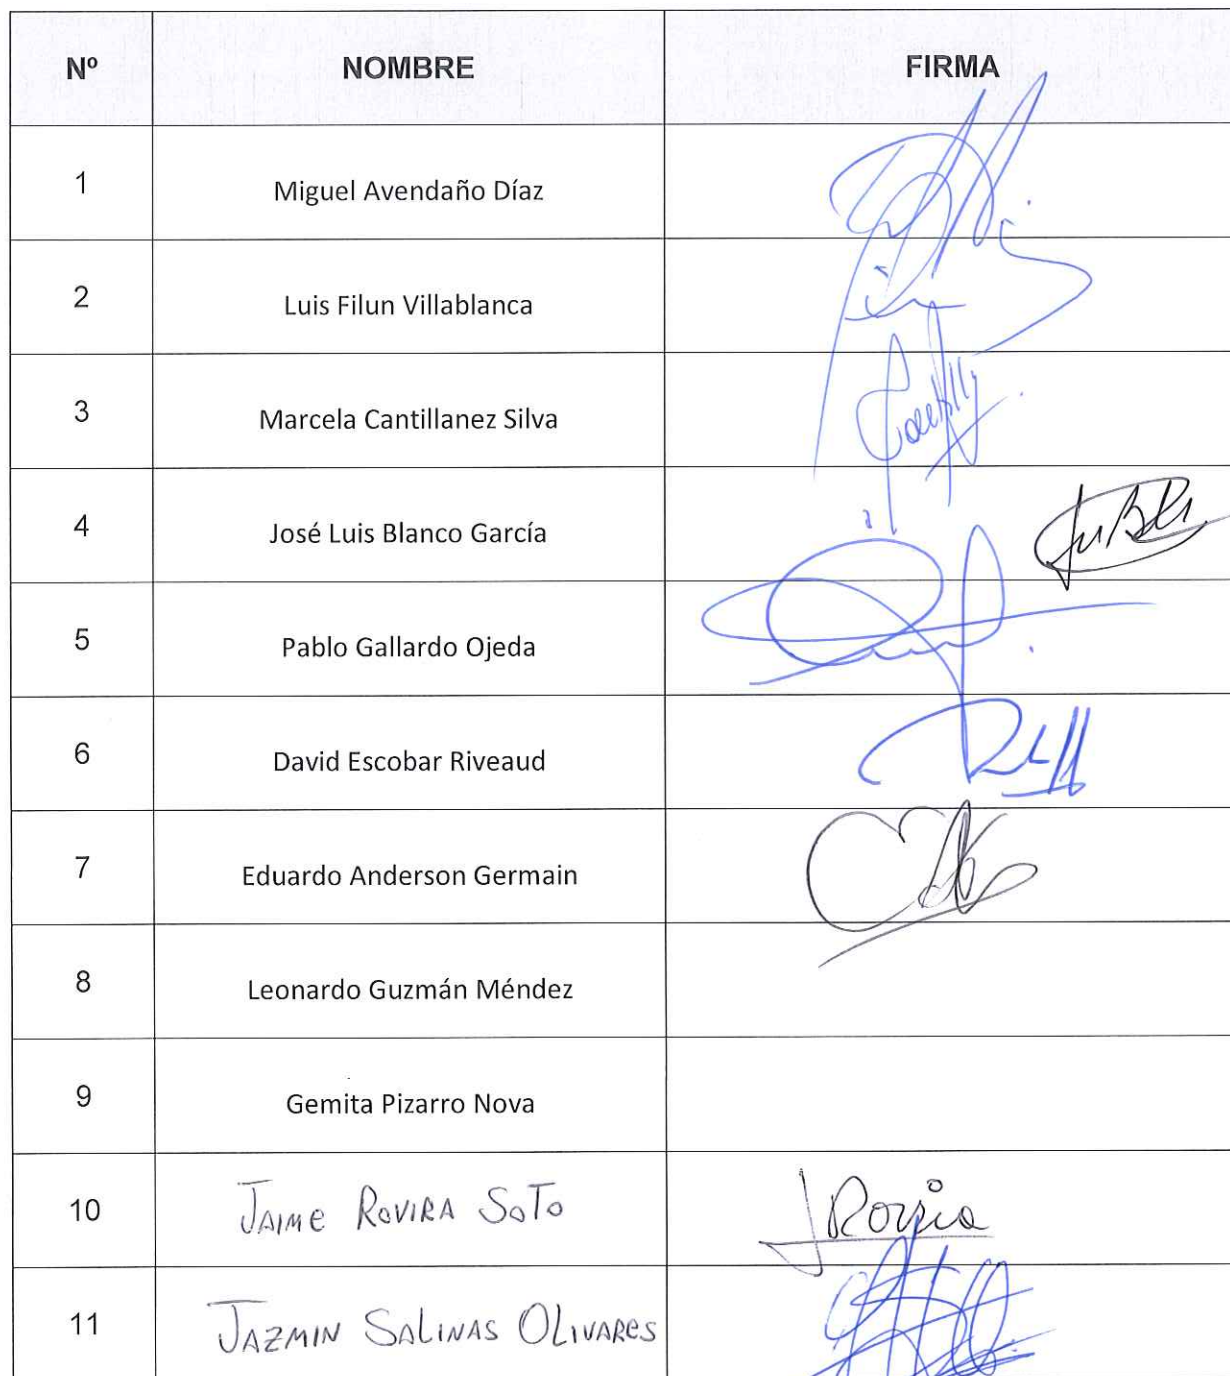 Nº NOMBRE FIRMA
1 Miguel Avendaño Díaz
2 Luis Filun Villablanca
3 Marcela Cantillanez Silva
4 José Luis Blanco García
5 Pablo Gallardo Ojeda
6 David Escobar Riveaud
7 Eduardo Anderson Germain
8 Leonardo Guzmán Méndez
9 Gemita Pizarro Nova
10 JAIME ROVIRA SOTO
11 JAZMIN SALINAS OLIVARES